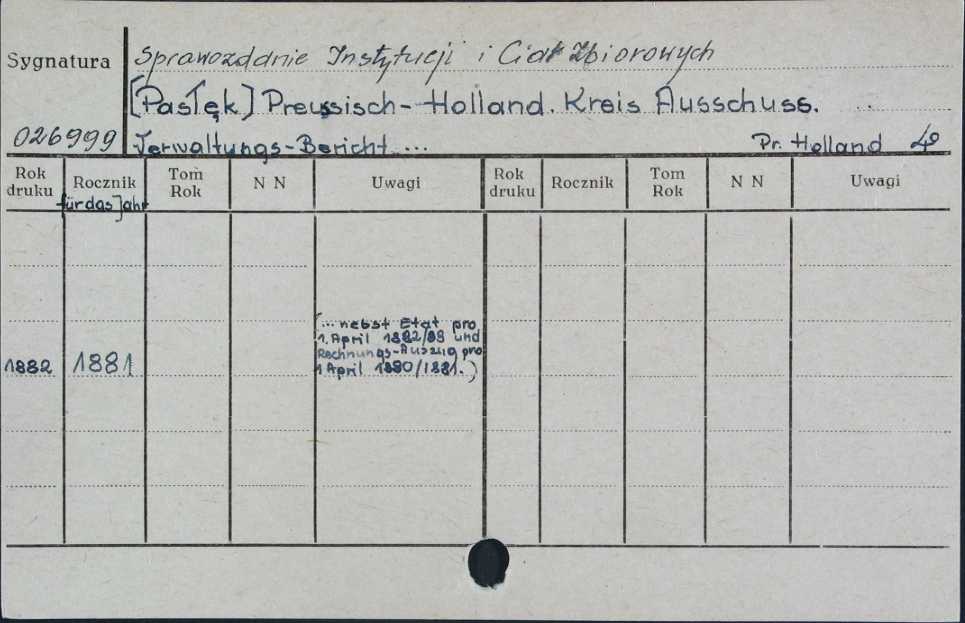 Sygnatura
Sprawozdanie Instytucji i Ciał Zbiorowych
[Pasłęk] Preussisch-Holland. Kreis Ausschuss.
026999
Verwaltungs-Bericht ...
Pr. Holland 4°
Rok druku
Rocznik
Tom Rok
N N
Uwagi
Rok druku
Rocznik
Tom Rok
N N
Uwagi
für das Jahr
1882
1881
(... nebst Etat pro
1. April 1882/83 und
Rechnungs-Auszug pro
1 April 1880/1881.)